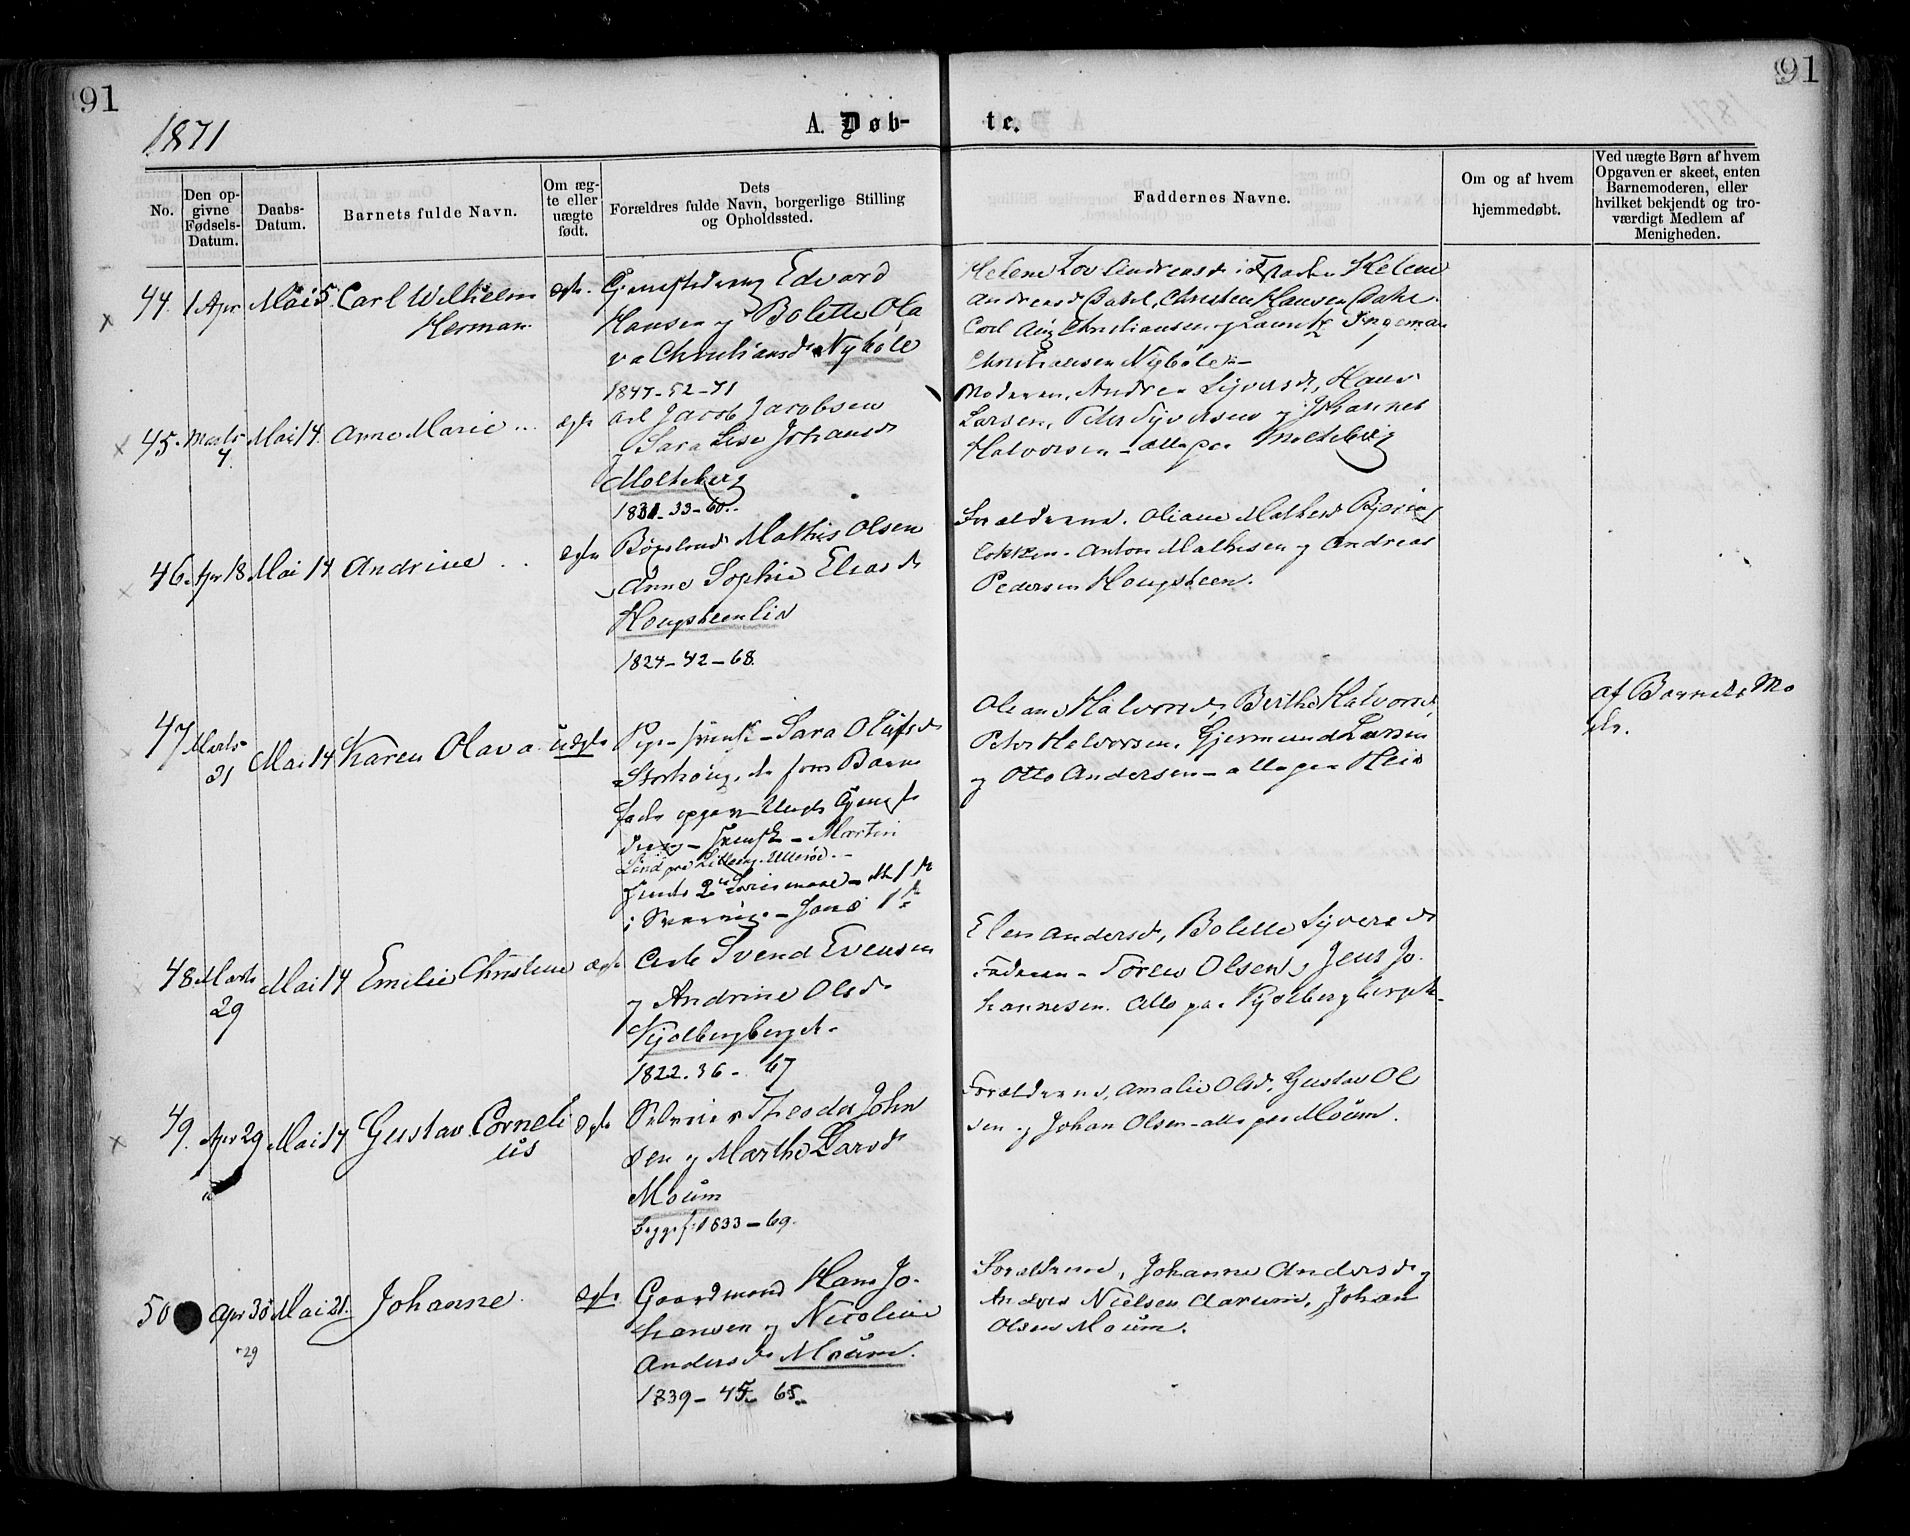 91
91
1871
A. Døb- te.
No.
Den op-
givne
Fødsels-
Datum.
Daabs-
Datum.
Barnets fulde Navn.
Om æg-
te eller
uægte
født.
Dets
Forældres fulde Navn, borgerlige Stilling
og Opholdssted.
Faddernes Navne.
Om og af hvem
hjemmedøbt.
Ved uægte Børn af hvem
Opgaven er skeet, enten
Barnemoderen, eller
hvilket bekjendt og tro-
værdigt Medlem af
Menigheden.
44. 1 Apr. Mai 5. Carl Wilhelm
Herman
Edvard
Hansen og Bolette Ola
va Christiansd. Nyböle
1847-52-71
Helene Andreasd. Helene
Andreasd. Christen Hansen
Carl Aug. Christiansen og Ingeman
Christiansen Nyböle
45. Marts
4. Mai 14. Anne Marie
Jacob Jacobsen
og Sara Lise Johansd.
Molteberg
1831-33-60.
Moderen, Andrea Syversd., Hans
Larsen, Peter Syversen og Johannes
Halvorsen - alle paa Molteberg
46. Apr 18 Mai 14 Andrine
Mathis Olsen
Anne Sophie Eliasd.
Hougsteenlid
1824-42-68.
Forældrene. Oliane Mathisd.
Anton Mathisen og Andreas
Pedersen Hougsteen.
47 Marts
21 Mai 14 Karen Olava uægte
Pige - svensk - Sara Olufsd.
som Barne
fader
svensk - Martin
Lind paa
i Sverrig.
Oleane Halvorsd., Berthe Halvorsd.
Peter Halvorsen. Gjermund Larsen
og Otto Andersen - alle paa
af Barnets Mo
der.
48 Marts
29 Mai 14 Emilie Christine
Svend Evensen
og Andrine Olsd.
Kjølbergberget.
1822. 36 - 67
Elen Andersd., Bolette Syversd.
Faderen - Olsen og Jens Jo-
hannesen. Alle paa Kjølbergberget.
49. Apr 29 Mai 14 Gustav Corneli
us
Selveier Theodor John
sen og Marthe Larsd.
Moum
begge f. 1833-69.
Forældrene, Amalie Olsd., Gustav Ol
sen og Johan Olsen - alle paa Moum.
50 Apr 30 Mai 21. Johanne
29
Gaardmand Hans Jo-
hansen og Nicoline
Andersd. Moum.
1839-45-65.
Forældrene, Johanne Andersd. og
Anders Nielsen Aarum, Johan
Olsen Moum.